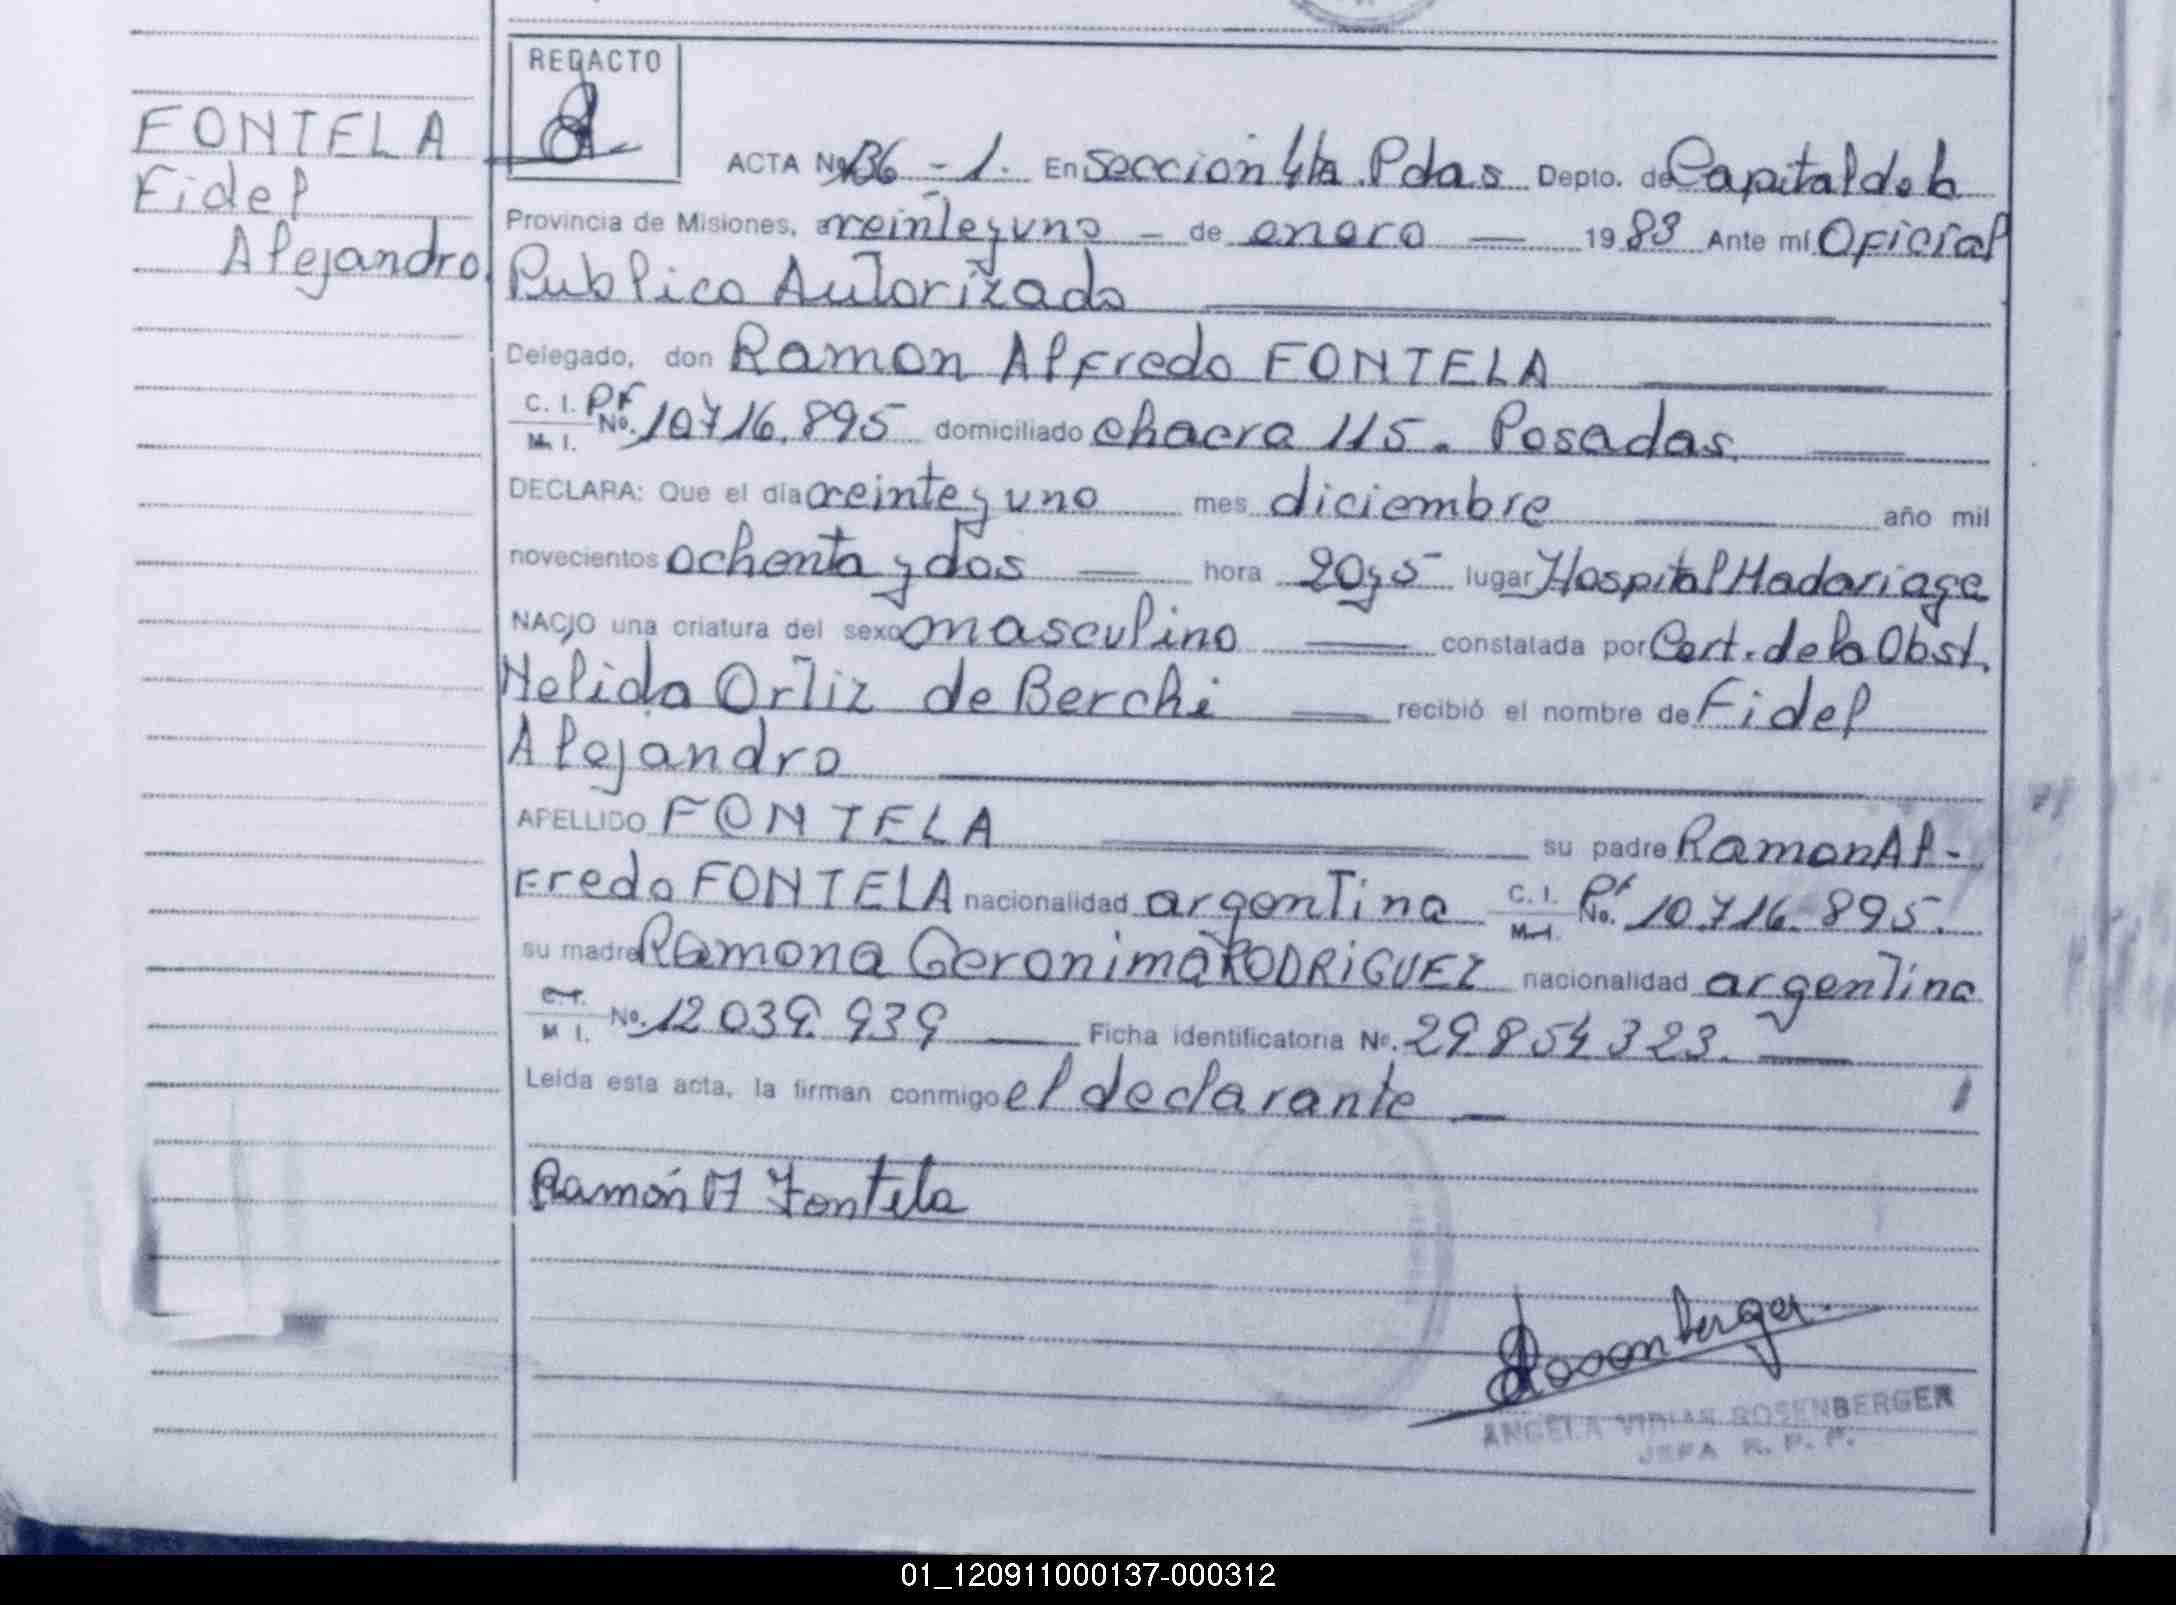 REDACTO
FONTELA
Fidel
Alejandro
ACTA No 136 - 1. En Sección 4ta Pdas Depto. de Capital de la
Provincia de Misiones, a veintey uno - de enero — 1983 Ante mí Oficial
Publico Autorizado
Delegado, don Ramon Alfredo FONTELA
C. I. Pf
M. I. No. 10716.895 domiciliado chacra 115. Posadas.
DECLARA: Que el día veinte y uno mes diciembre año mil
novecientos ochenta y dos — hora 20y5 lugar Hospital Madariaga
NACIO una criatura del sexo masculino constatada por Cert. de la Obst.
Nelida Ortiz de Berchi recibió el nombre de Fidel
Alejandro
APELLIDO FONTELA su padre Ramon Al-
fredo FONTELA nacionalidad argentina C. I. Pf
M. I. No. 10.716.895.
su madre Ramona Geronima RODRiGUEZ nacionalidad argentina
C. I.
M I. No. 12039.939 — Ficha identificatoria No. 29854323.
Leída esta acta, la firman conmigo el declarante —
Ramón A Fontela
Rosenberger
ANGELA ROSENBERGER
JEFA R. P. P.
01_120911000137-000312